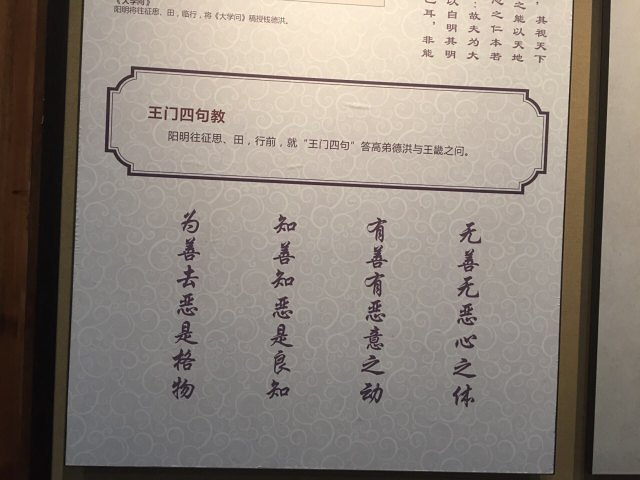 《大学问》
阳明将往征思、田，临行，将《大学问》稿授钱德洪。
，其视天下
之能以天地
心之仁本若
：故夫为大
以自明其明
已耳，非能
王门四句教
阳明往征思、田，行前，就“王门四句”答高弟德洪与王畿之问。
无善无恶心之体
有善有恶意之动
知善知恶是良知
为善去恶是格物